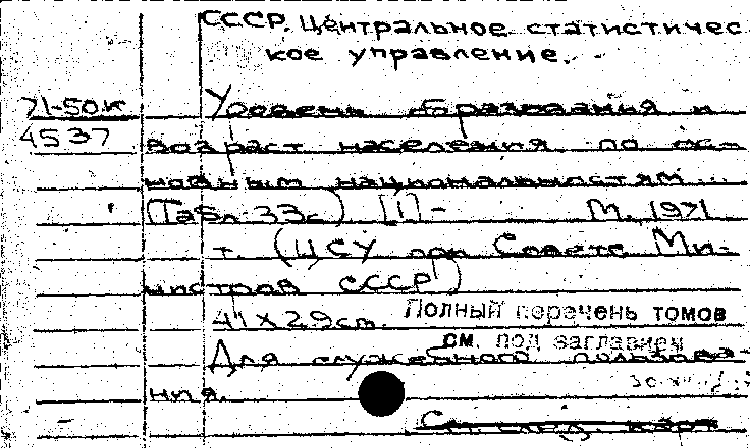 СССР. Центральное статистичес
кое управление.
71-50к
4537
Уровень образования и
возраст населения по ос-
новным национальностям...
(Табл. 33с) [1] - М., 1971
т. (ЦСУ при Совете Ми-
нистров СССР)
41 x 29 cm. Полный перечень томов
см. под заглавием
Для служебного пользова-
ния.
См. след. карт